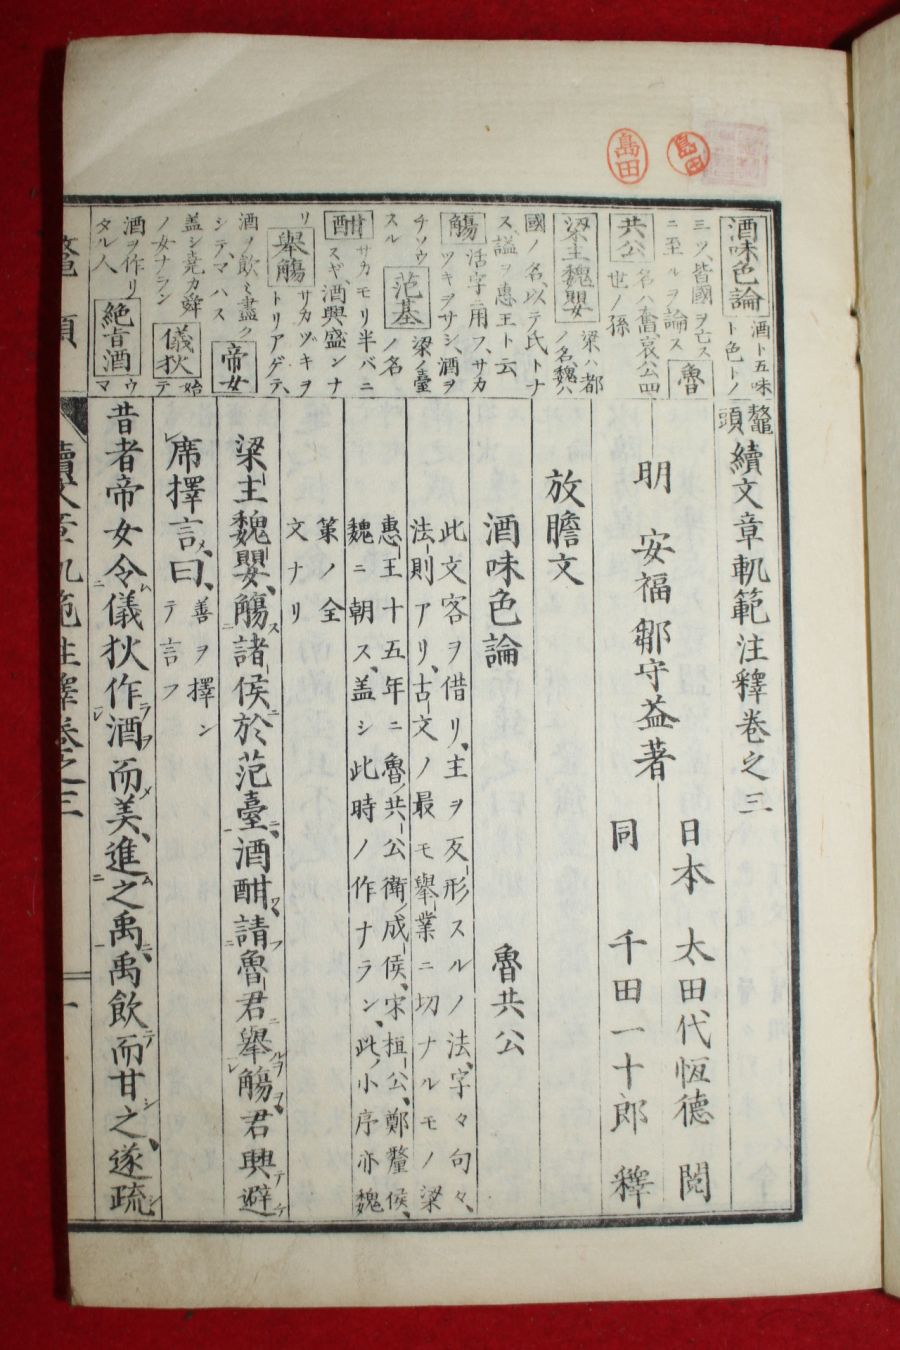 島田
島田
酒味色論 酒ト五味ト色トノ
三ツ、皆國ヲ亡スニ至ルヲ論ス 魯
共公 名ハ奮哀公四世ノ孫
梁主魏嬰 梁ハ都ノ名魏ハ
國ノ名、以テ氏トナス、謚ヲ惠王ト云
觴 活字ニ用フ、サカツキヲサシ、酒ヲ
チソウスル 范基 梁ノ臺ノ名
酣 サカモリ半バニスギ、酒興盛ンナ
リ 舉觴 サカヅキヲトリアゲテ、
酒ヲ飲ミ盡クシテ、マハス 帝女
蓋シ堯カ舜ノ女ナラン 儀狄 始テ
酒ヲ作リタル人 絶旨酒 ウマ
鼇頭續文章軌範注釋卷之三
明 安福鄒守益著
日本 太田代恆德 閲
同 千田一十郎 釋
放膽文
酒味色論 魯共公
此文客ヲ借リ、主ヲ反形スルノ法、字々句々、
法則アリ、古文ノ最モ舉業ニ切ナルモノ梁
惠王十五年ニ魯ノ共公衛ノ成侯、宋桓公、鄭釐侯、
魏ニ朝ス、蓋シ此時ノ作ナラン、此ノ小序亦魏
策ノ全
文ナリ
梁主魏嬰、觴諸侯於范臺、酒酣請魯君舉觴、君興避
席擇言曰、善ヲ擇ンテ言フ
昔者帝女令儀狄作酒而美、進之禹、禹飲而甘之、遂疏
鼇頭
續文章軌範注釋卷之三
一